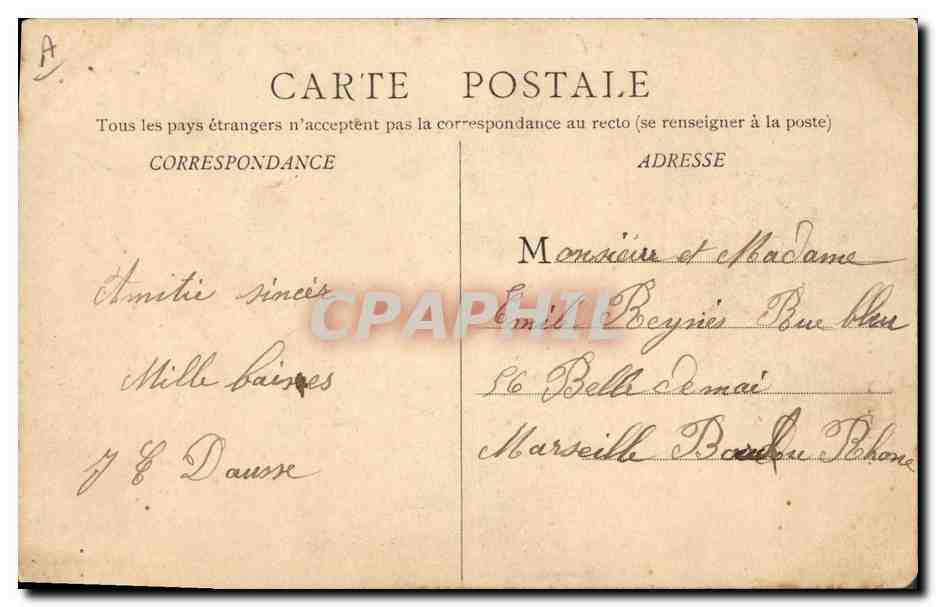 A
CARTE POSTALE
Tous les pays étrangers n'acceptent pas la correspondance au recto (se renseigner à la poste)
CORRESPONDANCE
Amitié sincér
Mille baises
J E Dausse
ADRESSE
Monsieur et Madame
Emile Reynès Rue bleu
56 Belle de mai
Marseille Rhone
CPAPHIL